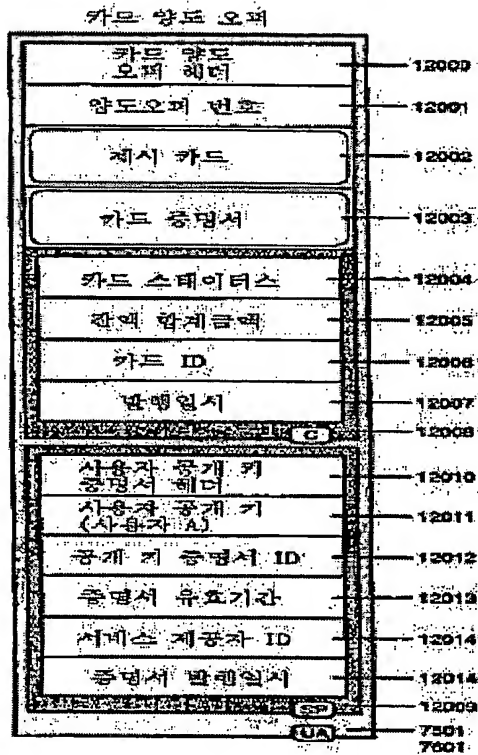 카드 양도 오퍼
카드 양도
오퍼 헤더
12000
양도오퍼 번호
12001
제시 카드
12002
카드 증명서
12003
카드 스테이터스
12004
잔액 합계금액
12005
카드 ID
12006
발행일시
12007
C
12008
사용자 공개 키
증명서 헤더
12010
사용자 공개 키
(사용자 A)
12011
공개 키 증명서 ID
12012
증명서 유효기간
12013
서비스 제공자 ID
12014
증명서 발행일시
12014
SP
12009
UA
7501
7601